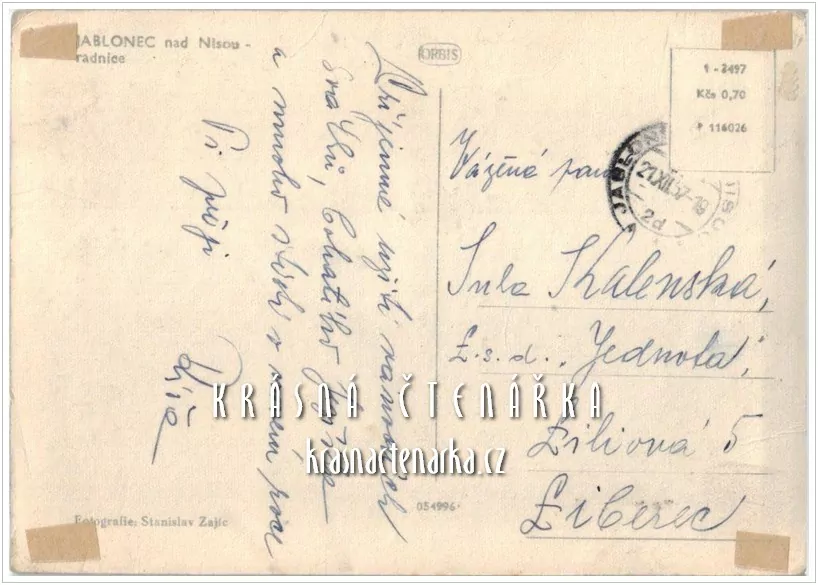 JABLONEC nad Nisou -
radnice
ORBIS
1 - 2497
Kčs 0,70
P 116026
Příjemné užití vánočních
svátků, bohatého Ježíška
a mnoho štěstí v novém roce
Ti přeji
Vážená paní
Kalenská,
"Jednota,
Liliová 5
Liberec
21.XII.57-18
2d
KRÁSNÁ ČTENÁŘKA
krasnactenarka.cz
Fotografie: Stanislav Zajíc
054996